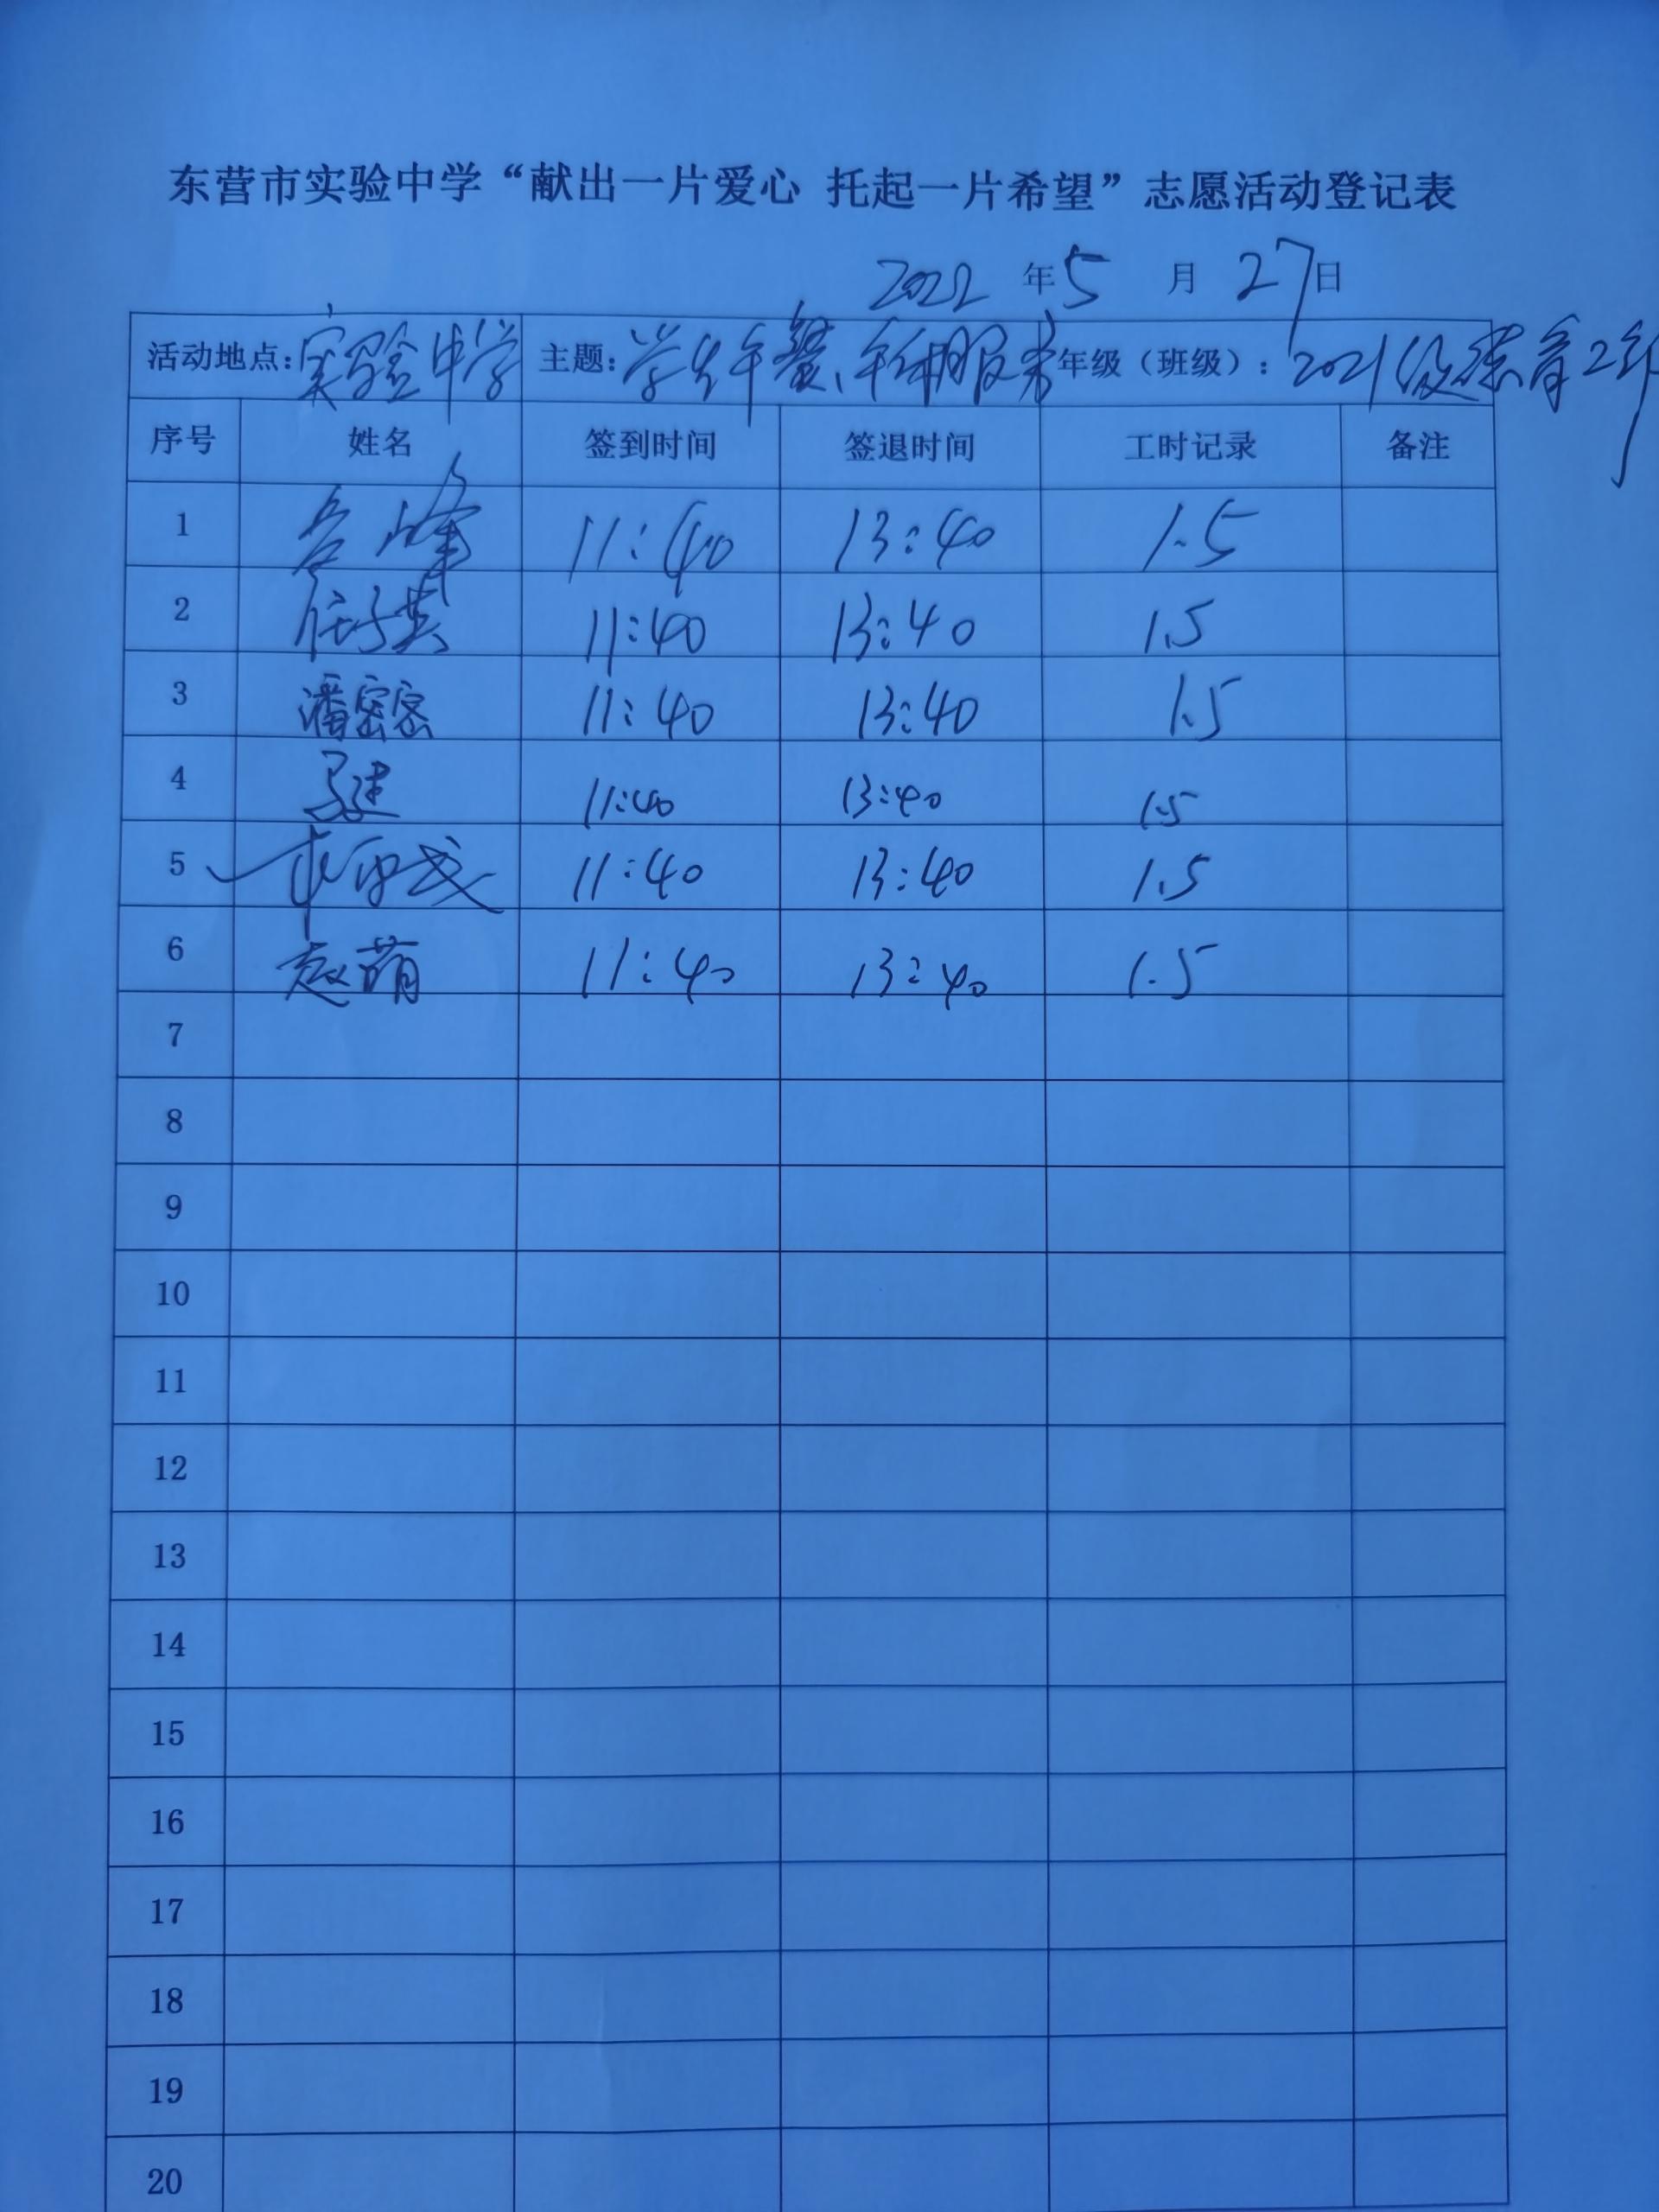 东营市实验中学“献出一片爱心 托起一片希望”志愿活动登记表
2022 年 5 月 27 日
活动地点：实验中学 主题：学生午餐、午休服务 年级（班级）：2021级 育2部
序号 姓名 签到时间 签退时间 工时记录 备注
1 峰 11:40 13:40 1.5
2 任子英 11:40 13:40 1.5
3 潘密密 11:40 13:40 1.5
4 11:40 13:40 1.5
5 11:40 13:40 1.5
6 赵萌 11:40 13:40 1.5
7
8
9
10
11
12
13
14
15
16
17
18
19
20